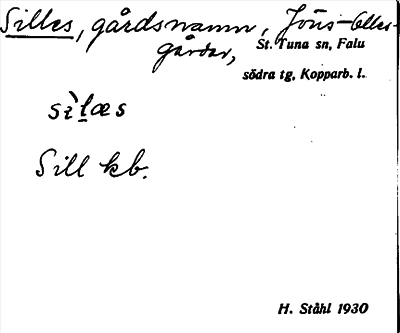 Silles, gårdsnamn, Jöns-Olles-
gårdar,
St. Tuna sn, Falu
södra tg, Kopparb. l.
sìlæs
Sill kb.
H. Ståhl 1930